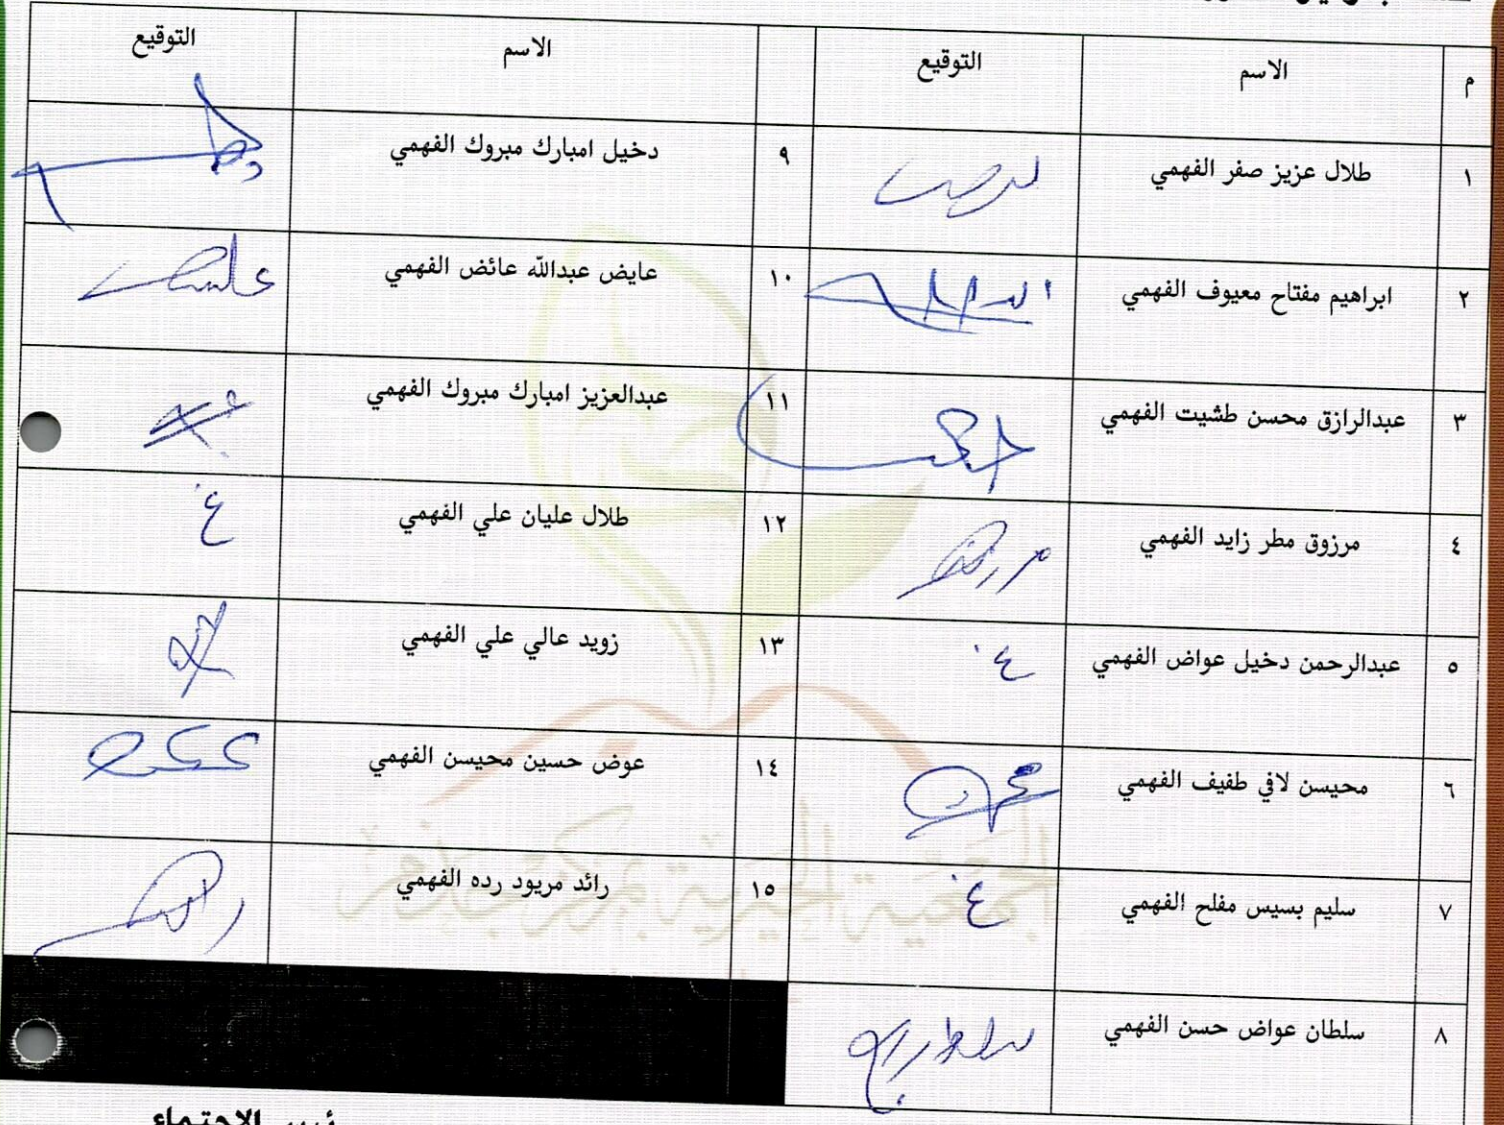 م الاسم التوقيع الاسم التوقيع
١ طلال عزيز صفر الفهمي ٩ دخيل امبارك مبروك الفهمي
٢ ابراهيم مفتاح معيوف الفهمي ١٠ عايض عبدالله عائض الفهمي
٣ عبدالرازق محسن طشيت الفهمي ١١ عبدالعزيز امبارك مبروك الفهمي
٤ مرزوق مطر زايد الفهمي ١٢ طلال عليان علي الفهمي غ
٥ عبدالرحمن دخيل عواض الفهمي غ ١٣ زويد عالي علي الفهمي
٦ محيسن لافي طفيف الفهمي ١٤ عوض حسين محيسن الفهمي
٧ سليم بسيس مفلح الفهمي غ ١٥ رائد مريود رده الفهمي
٨ سلطان عواض حسن الفهمي
الجمعية الخيرية بمركز جدم